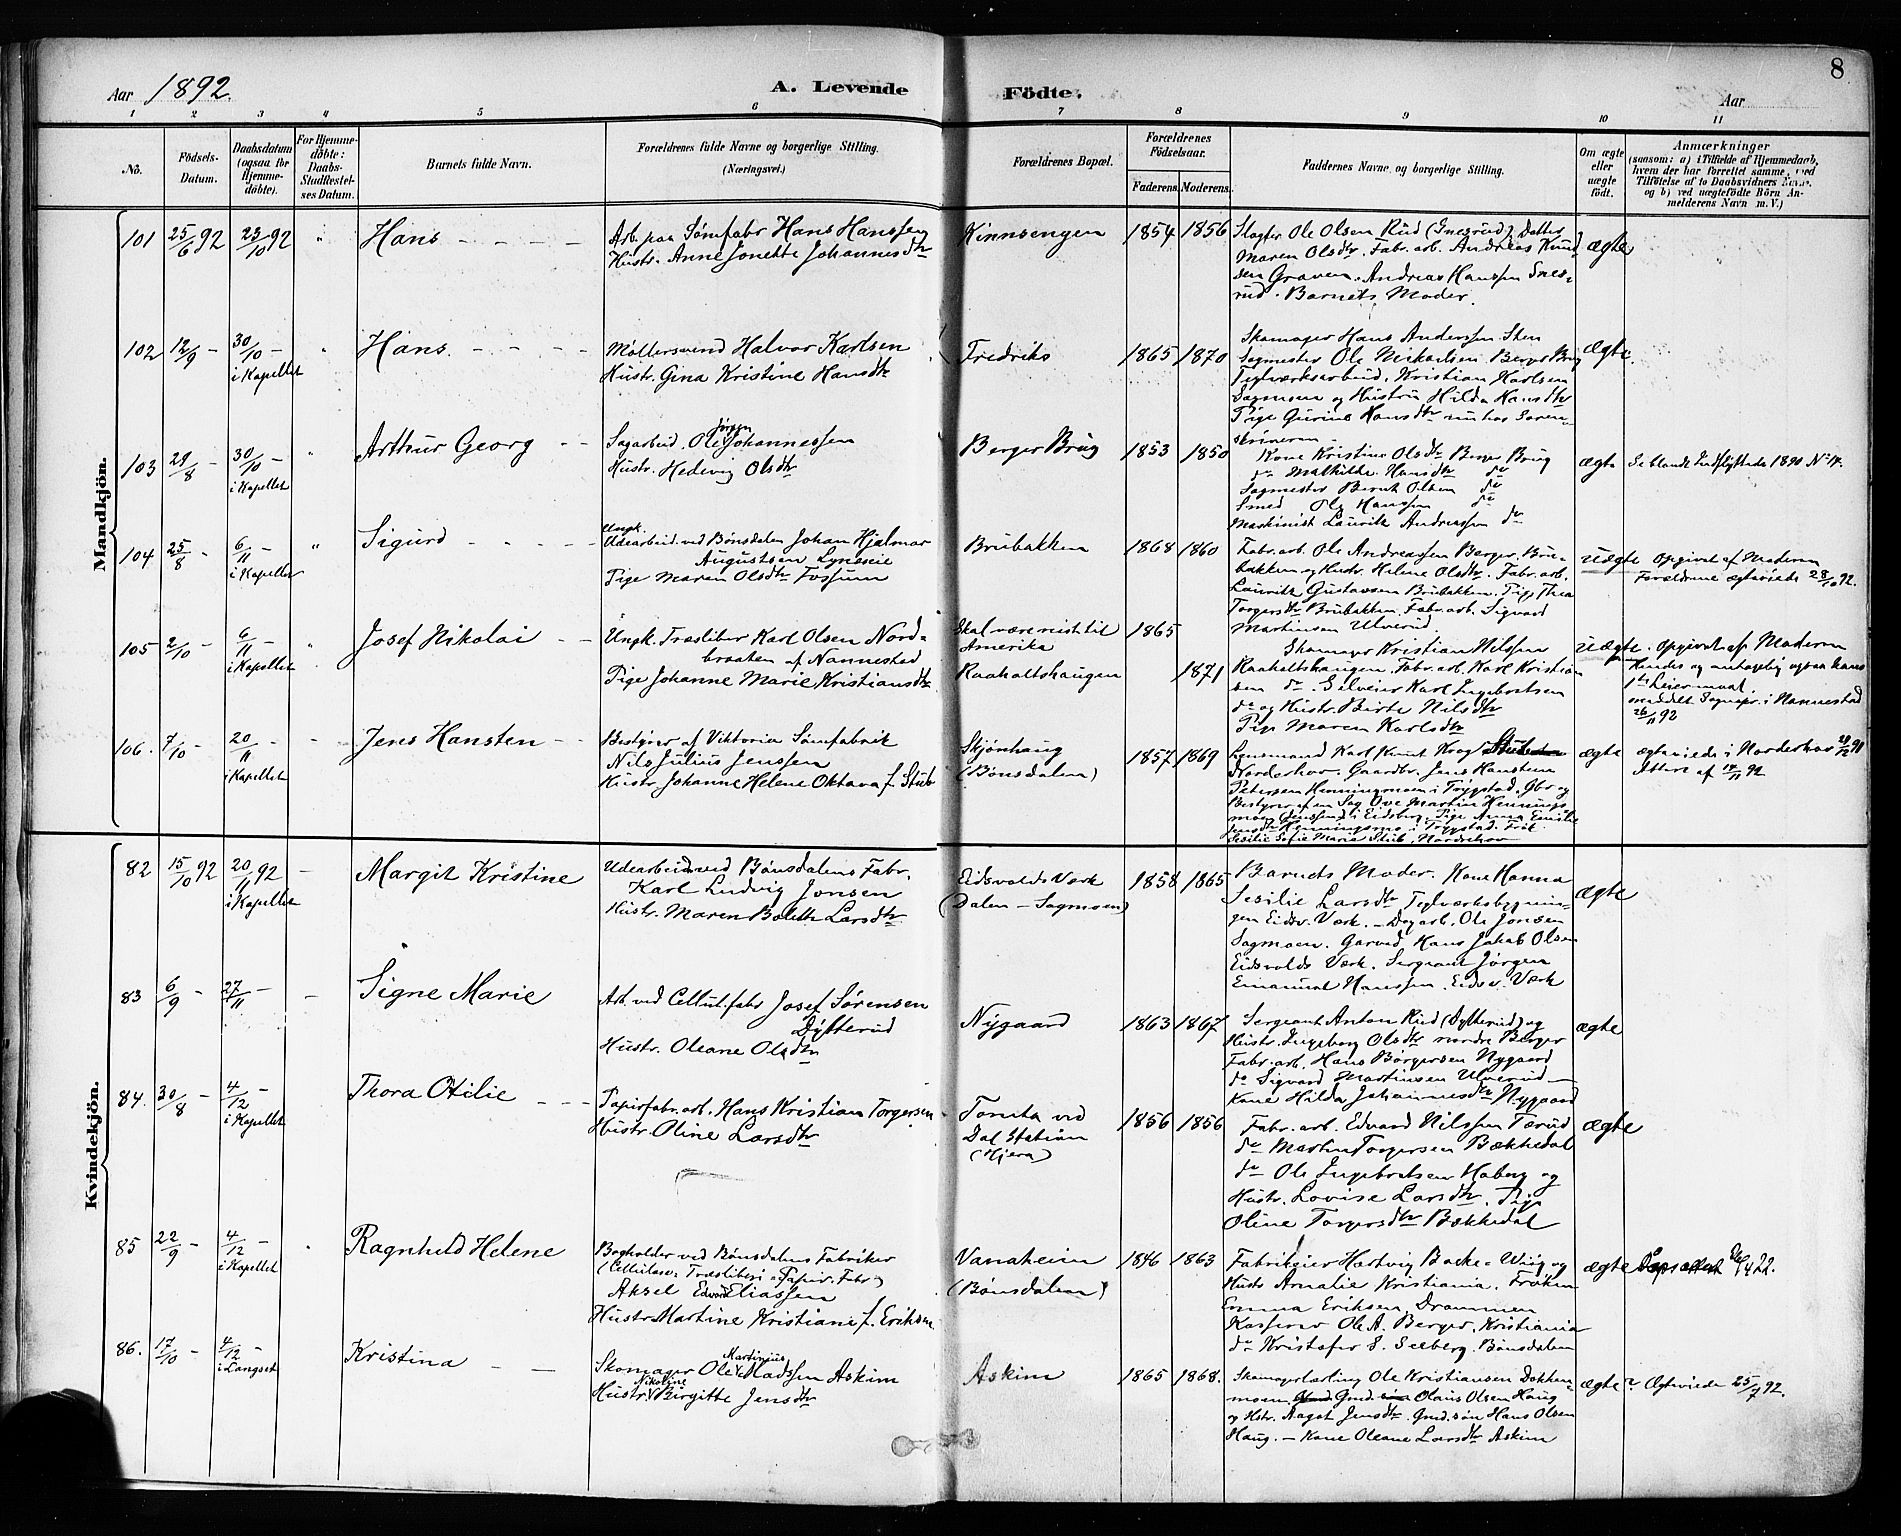 8
Aar 1892.
A. Levende Fødte.
Aar
1 2 3 4 5 6 7 8 9 10 11
No.
Fødsels-Datum.
Daabsdatum (ogsaa for Hjemmedøbte).
For Hjemmedøbte: Daabs-Stadfæstelses Datum.
Barnets fulde Navn.
Forældrenes fulde Navne og borgerlige Stilling. (Næringsvei.)
Forældrenes Bopæl.
Forældrenes Fødselsaar.
Faderens. Moderens.
Faddernes Navne og borgerlige Stilling.
Om ægte eller uægte født.
Anmærkninger
(saasom: a) i Tilfælde af Hjemmedaab, hvem der har forrettet samme, med Tilføielse af to Daabsvidners Navne, og b) ved uægtefødte Börn Anmelderens Navn m. V.)
Mandkjön.
101 25/6 92 23/10 92 " Hans
Arb. paa Sømfabr Hans Hanssen
Hustr. Anne Jonette Johannesdtr
Kinnsengen 1854 1856
Slagter Ole Olsen Rud (Snesrud) Datter
Maren Olsdtr. Fabr. arb. Andreas Knud
sen Graven. Andreas Hanssen Snes-
rud. Barnets Moder.
ægte
102 12/9 - 30/10 - i Kapellet " Hans.
Møllersvend Halvor Karlsen
Hustr. Gina Kristine Hansdtr
Fredriks 1865 1870
Skomager Hans Anderssen Sten
Sagmester Ole Mikaelsen Berger Brug
Teglværksarbeid. Kristian Karlsen
Sagmoen og Hustru Hilda Hansdtr
Pige Gurine Hansdtr
ægte.
103 29/8 - 30/10 - i Kapellet " Arthur Georg
Sagarbeid. Ole Jörgen Johannessen
Hustr. Hedevig Olsdtr
Berger Brug 1853 1850
Kone Kristine Olsdtr Berger Brug
do Mathilde Hansdtr do
Sagmester Bernt Olsen do
Smed Ole Hanssen do
Maskinist Lauritz Andreassen do
ægte Se blandt Indflyttede 1890 No 14.
104 25/8 - 6/11 - i Kapellet " Sigurd
Ungk.
Udearbeid. ved Bønsdalen Johan Hjalmar
Augustsen Lyneseie
Pige Maren Olsdtr Fossum
Brubakken 1868 1860
Fabr. arb. Ole Andreassen Berger, Bru-
bakken og Hustr. Helene Olsdtr. Fabr. arb.
Lauritz Gustavsen Brubakken. Pige Thea
Torgersdtr Brubakken. Fabr. arb. Sigvard
Martinsen Ulverud
uægte Opgivet af Moderen
Forældrene ægteviede 28/10 92.
105 2/10 - 6/11 - i Kapellet " Josef Nikolai
Ungk. Træsliber Karl Olsen Nord-
braaten af Nannestad
Pige Johanne Marie Kristiansdtr
Skal være reist til 1865
Amerika
Raaholtshaugen 1871
Skomager Kristian Nilssen
Raaholtshaugen. Fabr. arb. Karl Kristian
sen do. Gelveier Karl Ingebretsen
do og Hustr. Birte Nilsdtr
Pige Maren Karlsdtr
uægte. Opgivet af Moderen
Hendes og antagelig ogsaa hans
1ste Leiermaal.
meddelt Sognepr. i Nannestad
26/11 92
106. 7/10 - 20/11 - i Kapellet Jens Hansten
Bestyrer af Viktoria Sømfabrik
Nils Julius Jenssen
Hustr. Johanne Helene Oktava f. Stub
Skjønhaug 1857 1869
(Bønsdalen)
Lensmand Karl Knut Krog
Norderhov. Gaardbr. Jens Hansteen
Petersen Henningmoen i Trygstad. Gbr og
Bestyrer af en Sag Ove Martin Hennings-
moen (Jenssen) i Eidsberg. Pige Anna Emilie
Jensdtr Henningsmo i Trygstad. Frøk.
Cecilie Sofie Marie Stub, Norderhov
ægte ægteviede i Norderhov 28/12 91
Attest af 14/11 92
Kvindekjön.
82 15/10 92 20/11 92 i Kapellet - Margit Kristine
Udearbeider ved Bønsdalens Fabr.
Karl Ludvig Jonsen
Hustr. Maren Bolette Larsdtr
Eidsvolds Værk 1858 1865
(Dalen - Sagmoen)
Barnets Moder. Kone Hanna
Sesilie Larsdtr Teglværksbygnin-
gen Eidsv. Værk. - Dagarb. Ole Jonsen
Sagmoen. Garved Hans Jakob Olsen
Eidsvolds Værk. Sergeant Jørgen
Emanuel Hanssen. Eidsv. Værk
ægte
83 6/9 - 27/11 - - Signe Marie
Arb. ved Cellul. fabr Josef Sørensen
Dytterud
Hustr. Oleane Olsdtr
Nygaard 1863 1867
Sergeant Anton Rud (Dytterud) og
Hustr. Ingeborg Olsdtr nordre Berger
Fabr. arb. Hans Børgersen Nygaard
do Sigvard Martinsen Ulverud
Kone Hilda Johannesdtr Nygaard
ægte
84. 30/8 - 4/12 - i Kapellet Thora Otilie
Papirfabr. arb. Hans Kristian Torgersen
Hustr. Oline Larsdtr
Tomta ved 1856 1856
Dal Station
(Hjera)
Fabr. arb. Edvard Nilssen Tærud
do Martin Torgersen Bækkedal
do Ole Ingebretsen Haberg og
Hustr. Lovise Larsdtr. Pige
Oline Torgersdtr Bækkedal
ægte
85 22/9 - 4/12 - i Kapellet " Ragnhild Helene
Bogholder ved Bønsdalens Fabriker
(Cellulose- Træsliberi- Papir. Fabr.)
Aksel Edvard Eliassen
Hustr. Martine Kristiane f. Eriksen
Vanaheim 1846 1863
(Bønsdalen)
Fabrikeier Hartvig Backe-Wiig og
Hustr Amalie Kristiania. Frøken
Emma Eriksen, Drammen
Kasserer Ole A. Berger, Kristiania
do Kristofer S. Seeberg. Bønsdalen
ægte Dåpsattest
86. 17/10 - 4/12 - i Langset Kristina
Skomager Ole Martinius Madssen Askim
Hustr. Nikoline Birgitte Jensdtr
Askim 1865 1868.
Skomagerlærling Ole Kristiansen Dokken-
moen Gmd. Olaus Olsen Haug
og Hstr. Aagot Jensdtr. Gmd. søn Hans Olsen
Haug. - Kone Oleane Larsdtr Askim
ægte ? Ægteviede 25/7 92.